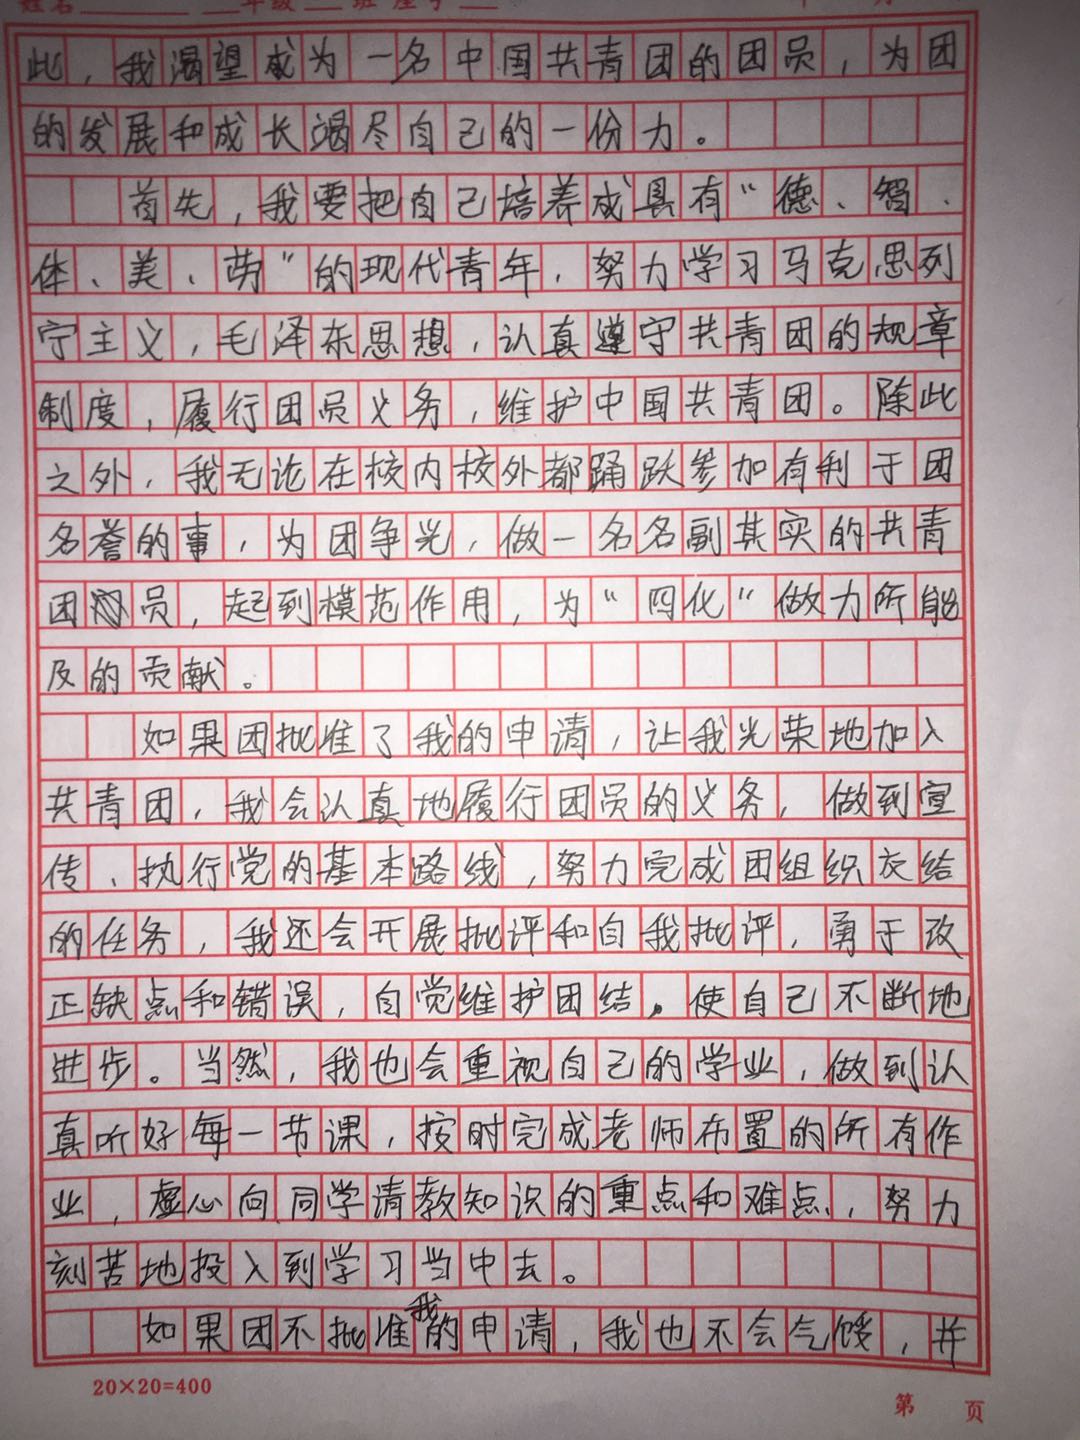 姓名 年级 班 座号
此，我渴望成为一名中国共青团的团员，为团
的发展和成长竭尽自己的一份力。
首先，我要把自己培养成具有“德、智、
体、美、劳”的现代青年，努力学习马克思列
宁主义，毛泽东思想，认真遵守共青团的规章
制度，履行团员义务，维护中国共青团。除此
之外，我无论在校内校外都踊跃参加有利于团
名誉的事，为团争光，做一名名副其实的共青
团员，起到模范作用，为“四化”做力所能
及的贡献。
如果团批准了我的申请，让我光荣地加入
共青团，我会认真地履行团员的义务，做到宣
传、执行党的基本路线，努力完成团组织交结
的任务，我还会开展批评和自我批评，勇于改
正缺点和错误，自觉维护团结。使自己不断地
进步。当然，我也会重视自己的学业，做到认
真听好每一节课，按时完成老师布置的所有作
业，虚心向同学请教知识的重点和难点，努力
刻苦地投入到学习当中去。
如果团不批准我的申请，我也不会气馁，并
20×20=400
第 页